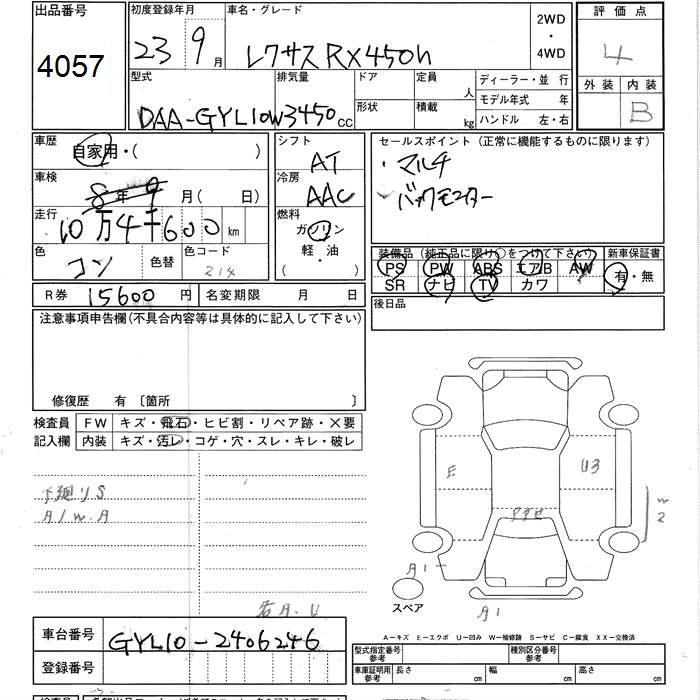 出品番号
4057
初度登録年月
23 9月
車名・グレード
レクサス RX450h
2WD
・
4WD
評価点
4
外装 内装
B
型式
DAA-GYL10W
排気量
3450cc
ドア
形状
定員
人
積載
kg
ディーラー・並 行
モデル年式 年
ハンドル 左・右
車歴
自家用・( )
車検
8年9月( 日)
走行
10万4千600km
色
コン
色替
色コード
214
シフト
AT
冷房
AAC
燃料
ガソリン
軽・油
( )
セールスポイント (正常に機能するものに限ります)
・マルチ
・バックモニター
装備品 (純正品に限り○をつけて下さい)
PS PW ABS エアB AW
SR ナビ TV カワ
新車保証書
有・無
後日品
R券 15600円
名変期限 月 日
注意事項申告欄(不具合内容等は具体的に記入して下さい)
修復歴 有 〔箇所 〕
検査員
記入欄
FW キズ・飛石・ヒビ割・リペア跡・×要
内装 キズ・汚レ・コゲ・穴・スレ・キレ・破レ
下廻りS
A/W.A
E
U3
W
2
A1
スペア
A1
A-キズ E-エクボ U-凹み W-補修跡 S-サビ C-腐食 XX-交換済
車台番号
GYL10-2406246
登録番号
型式指定番号
参考
種別区分番号
参考
車庫証明用
参考
長さ cm
幅 cm
高さ cm